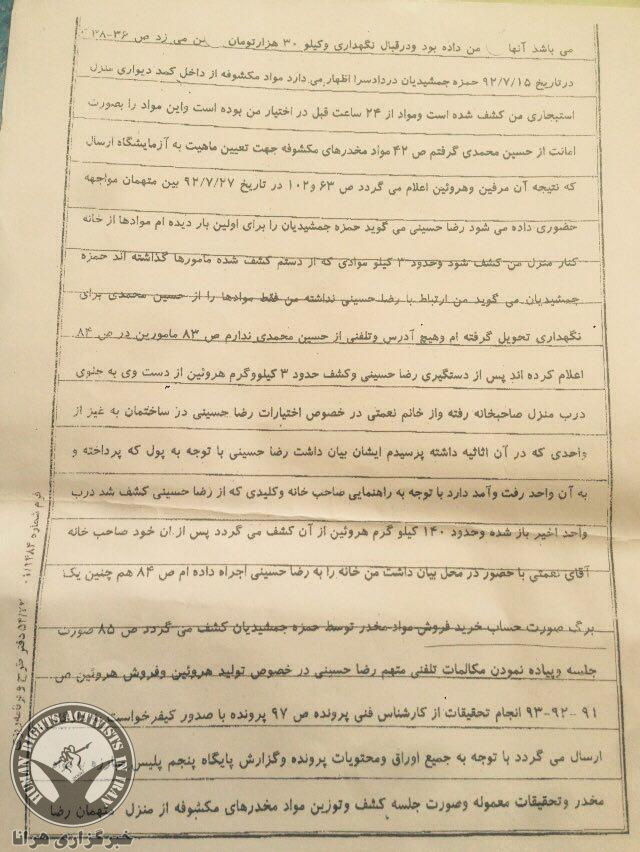 می باشد آنها من داده بود ودرقبال نگهداری وکیلو ۳۰ هزارتومان من می زد ص ۳۶-۳۸
درتاریخ ۹۲/۷/۱۵ حمزه جمشیدیان دردادسرا اظهار می دارد مواد مکشوفه از داخل کمد دیواری منزل
استیجاری من کشف شده است ومواد از ۲۴ ساعت قبل در اختیار من بوده است واین مواد را بصورت
امانت از حسین محمدی گرفتم ص ۴۲ مواد مخدرهای مکشوفه جهت تعیین ماهیت به آزمایشگاه ارسال
که نتیجه آن مرفین وهروئین اعلام می گردد ص ۶۳ و۱۰۲ در تاریخ ۹۲/۷/۲۷ بین متهمان مواجهه
حضوری داده می شود رضا حسینی می گوید حمزه جمشیدیان را برای اولین بار دیده ام موادها از خانه
کنار منزل من کشف شود وحدود ۳ کیلو موادی که از دستم کشف شده مامورها گذاشته اند حمزه
جمشیدیان می گوید من ارتباط با رضا حسینی نداشته من فقط موادها را از حسین محمدی برای
نگهداری تحویل گرفته ام وهیچ آدرس وتلفنی از حسین محمدی ندارم ص ۸۳ مامورین در ص ۸۴
اعلام کرده اند پس از دستگیری رضا حسینی وکشف حدود ۳ کیلووگرم هروئین از دست وی به جلوی
درب منزل صاحبخانه رفته واز خانم نعمتی در خصوص اختیارات رضا حسینی در ساختمان به غیر از
واحدی که در آن اثاثیه داشته پرسیدم ایشان بیان داشت رضا حسینی با توجه به پول که پرداخته و
به آن واحد رفت وآمد دارد با توجه به راهنمایی صاحب خانه وکلیدی که از رضا حسینی کشف شد درب
واحد اخیر باز شده وحدود ۱۴۰ کیلو گرم هروئین از آن کشف می گردد پس از آن خود صاحب خانه
آقای نعمتی با حضور در محل بیان داشت من خانه را به رضا حسینی اجراه داده ام ص ۸۴ هم چنین یک
برگ صورت حساب خرید فروش مواد مخدر توسط حمزه جمشیدیان کشف می گردد ص ۸۵ صورت
جلسه وپیاده نمودن مکالمات تلفنی متهم رضا حسینی در خصوص تولید هروئین وفروش هروئین ص
۹۱-۹۲-۹۳ انجام تحقیقات از کارشناس فنی پرونده ص ۹۷ پرونده با صدور کیفرخواست
ارسال می گردد با توجه به جمیع اوراق ومحتویات پرونده وگزارش پایگاه پنجم پلیس
مخدر وتحقیقات معموله وصورت جلسه کشف وتوزین مواد مخدرهای مکشوفه از منزل متهمان رضا
فرم شماره
دفتر طرح و برنامه
HUMAN RIGHTS ACTIVISTS IN IRAN
خبرگزاری هرانا